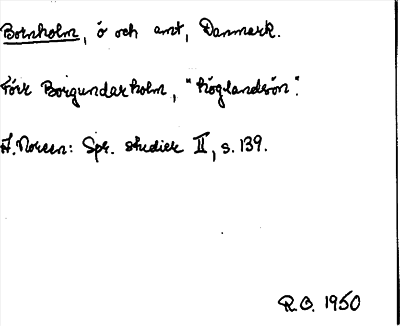 Bornholm, ö och amt, Danmark.
Förr Borgundarholm, "höglandsön".
A. Noreen: Spr. studier II, s. 139.
R.O. 1950